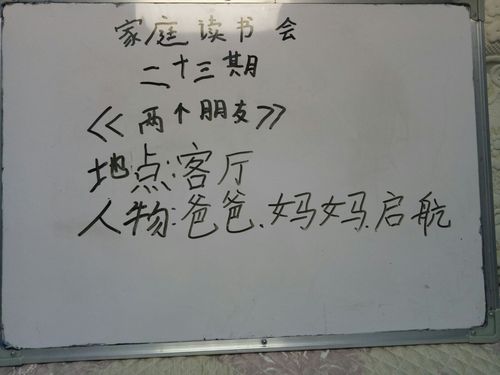 家庭读书会
二十三期
《两个朋友》
地点:客厅
人物:爸爸.妈妈.启航